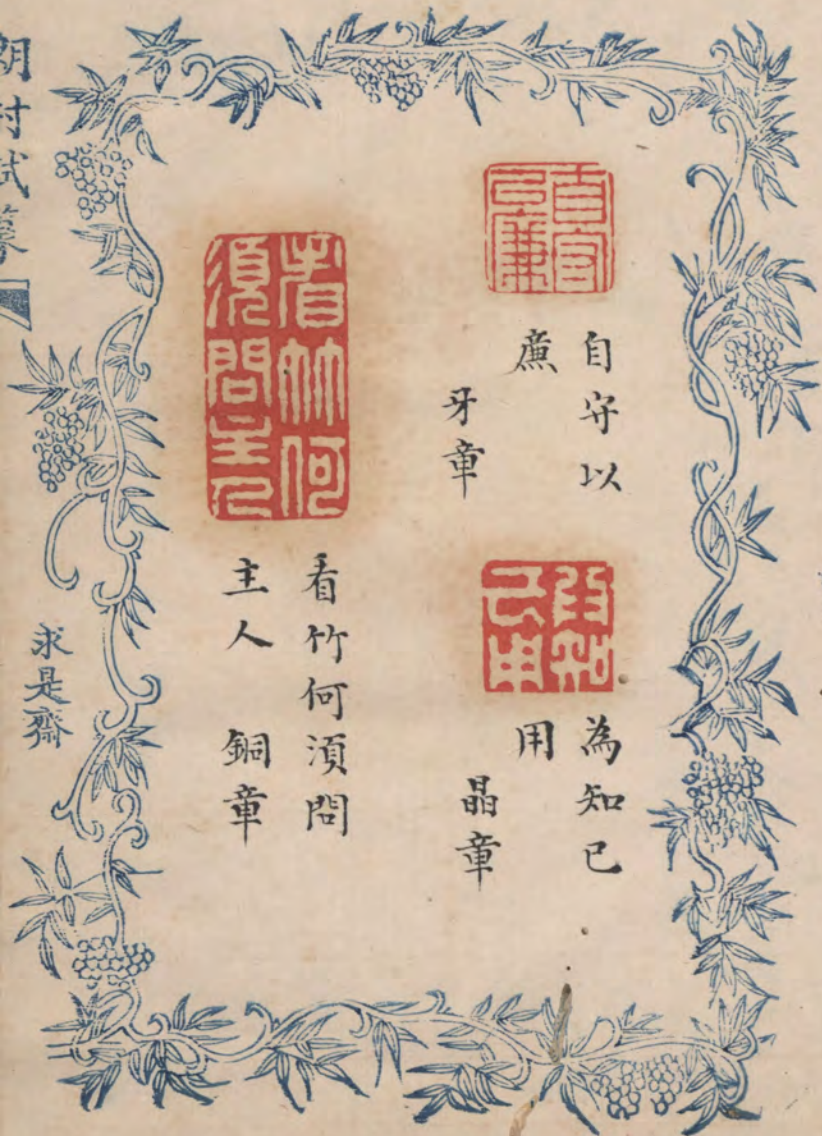 自守以廉
自守以
廉
牙章
為知己用
為知己
用
晶章
看竹何須問主人
看竹何湏問
主人
銅章
求是齋
朗村試篆